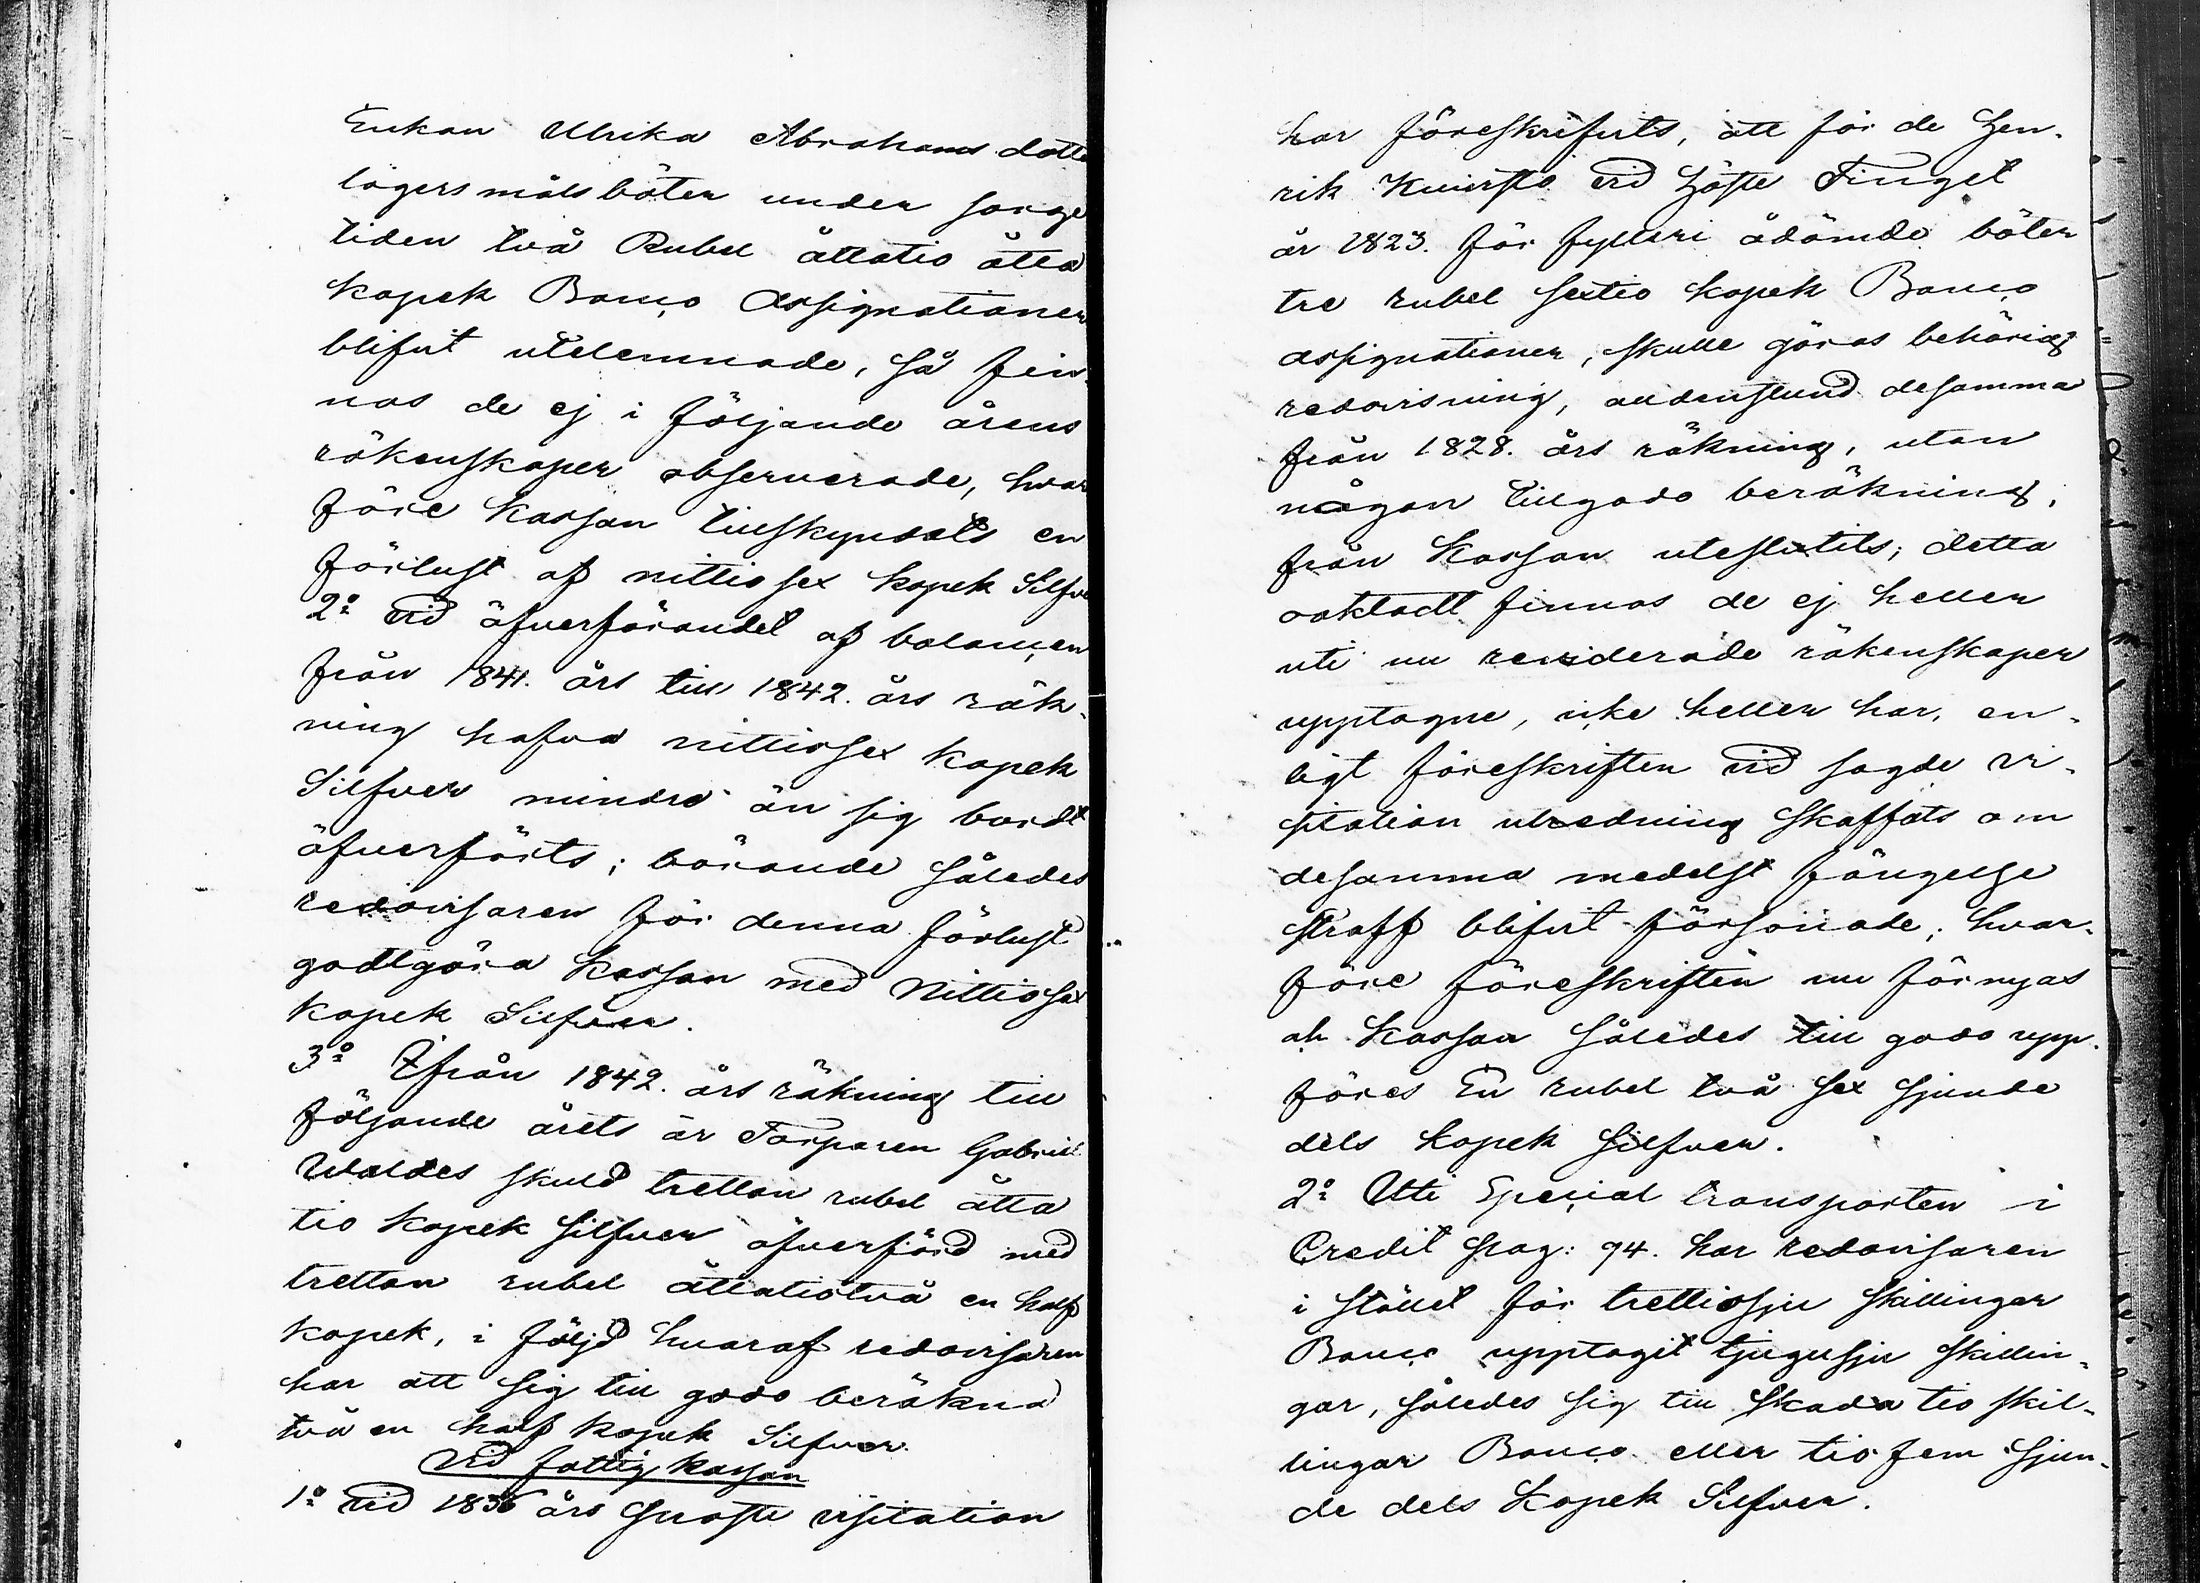 Enkan Ulrika Abrahams dotte
lägersmåls böter under sorge
tiden två Rubel åttatio åtta
kopek Banco Assignationer
blifvit utelemnade, så fin-
nas de ej i följande årens
räkenskaper observerade, hvar
före Kassan tillskyndats en
förlust af nittiosex kopek Silfve
2:o vid öfverförandet af balancen
från 1841. års till 1842. års räk-
ning hafva nittiosex kopek
Silfver mindre än sig bordt
öfverförts; börande således
redovisaren för denna förlust
godtgöra Kassan med Nittiosex
kopek Silfver.
3:o Ifrån 1842. års räkning till
följande årets är Torparen Gabriel
Waldes skuld tretton rubel åtta
tio kopek Silfver öfverförd med
tretton rubel åttatiotvå en half
kopek, i följd hvaraf redovisaren
har att sig till godo beräkna
två en half kopek Silfver.
Vid fattig kassan
1:o vid 1836 års Proste visitation
har föreskrifvits, att för de Hen-
rik Knivsto vid Höste Tinget
år 1823. för fylleri ådömde böter
tre rubel sextio kopek Banco
assignationer, skulle göras behörig
redovisning, alldenstund desamma
från 1828. års räkning, utan
någon tillgodo beräkning,
från Kassan uteslutits; detta
oaktadt finnas de ej heller
uti nu reviderade räkenskaper
upptagne, icke heller har, en-
ligt föreskriften vid sagde vi-
sitation utredning skaffats om
desamma medelst fängelse
straff blifvit försonade; hvar-
före föreskriften nu förnyas
ah Kassan således till godo upp-
föres En rubel två sex sjunde
dels kopek Silfver.
2:o Uti Special transporten i
Credit pag: 94. har redovisaren
i stället för trettiosju skillingar
Banco upptagit tjugusju skillin-
gar, således sig till skada tio skil-
lingar Banco eller tio fem sjun-
de dels Kopek Silfver.